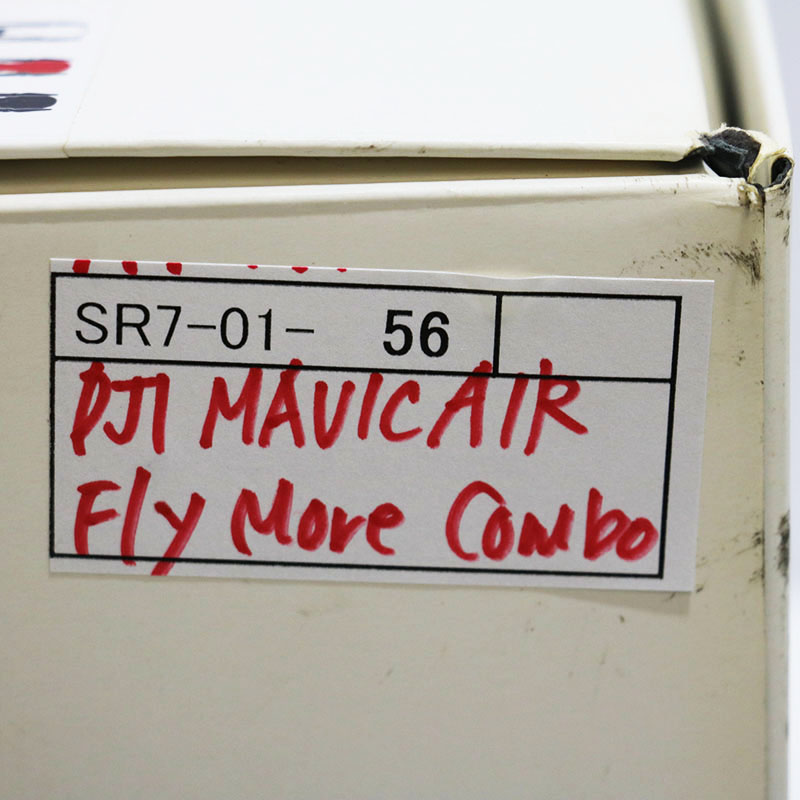 SR7-01- 56
DJI MAVIC AIR
Fly More Combo